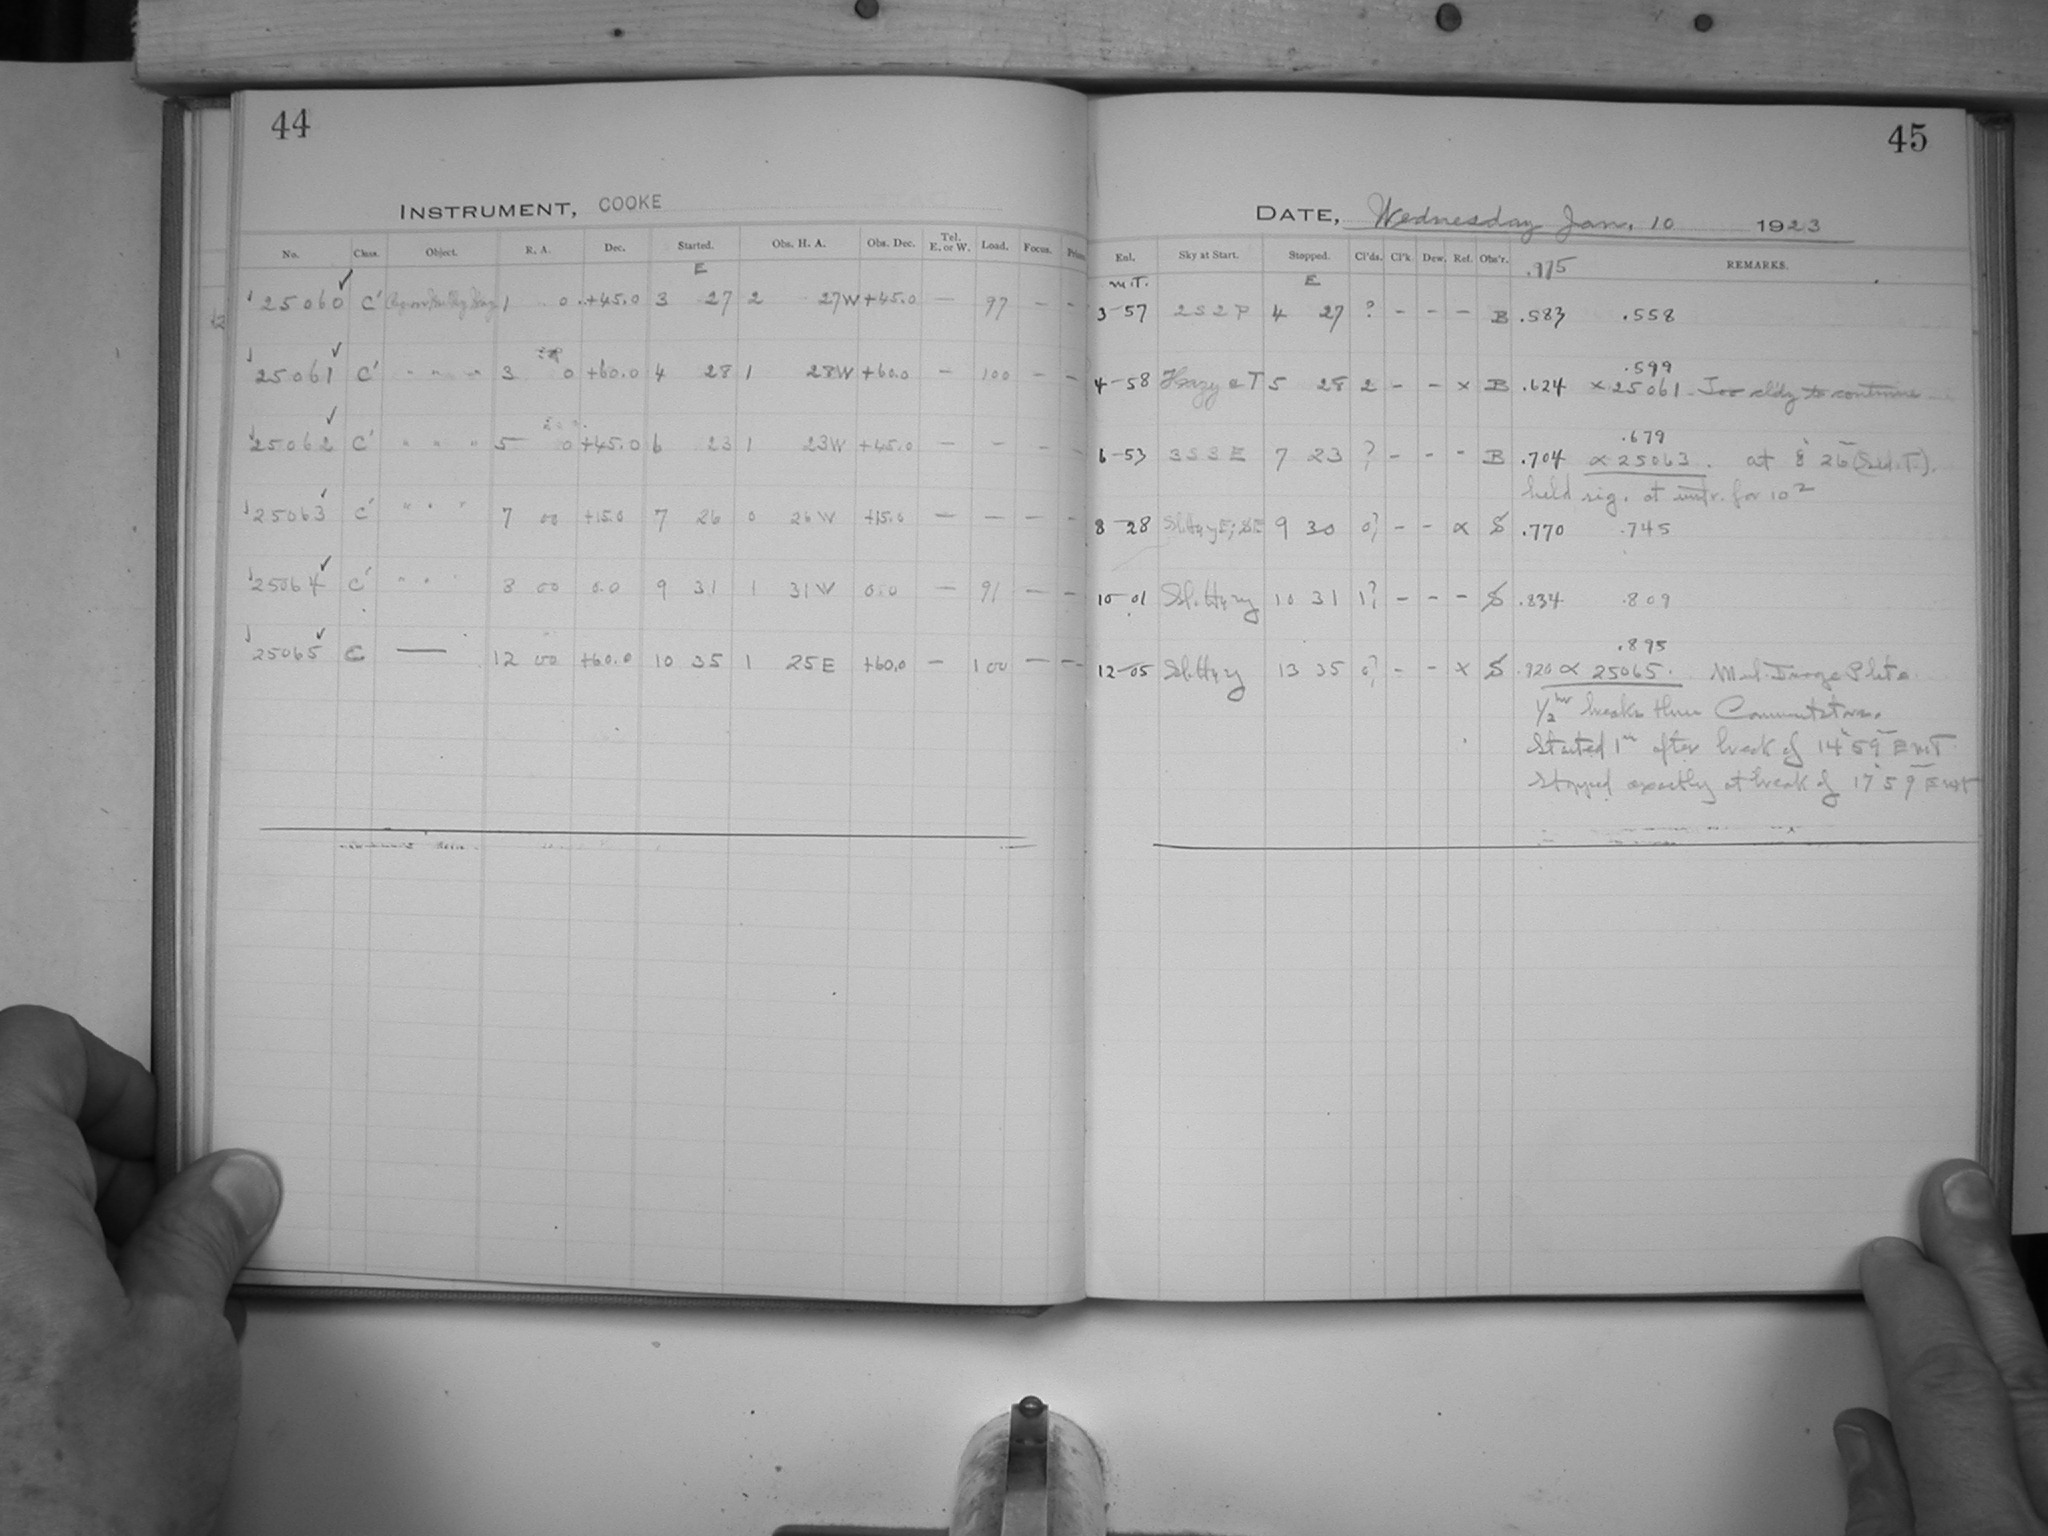 44
INSTRUMENT, COOKE
No. Class. Object. R. A. Dec. Started. Obs. H. A. Obs. Dec. Tel. E. or W. Load. Focus.
E
25060 C' 1 0 +45.0 3 27 2 27W +45.0 — 97 — —
25061 C' " " " 3 0 +60.0 4 28 1 28W +60.0 — 100 — —
25062 C' " " " 5 0 +45.0 6 23 1 23W +45.0 — — — —
25063 C' " " " 7 00 +15.0 7 26 0 26W +15.0 — — — —
25064 C' " " " 8 00 0.0 9 31 1 31W 0.0 — 91 — —
25065 C — 12 00 +60.0 10 35 1 25E +60.0 — 100 — —
45
DATE, Wednesday Jan. 10 1923
Enl. Sky at Start. Stopped. Cl'ds. Cl'k Dew. Ref. Obs'r. .975 REMARKS.
M.T. E
3-57 2S2P 4 27 ? - - - B .583 .558
.599
4-58 Hazy & T 5 28 2 - - x B .624 x 25061 - Too cldy to continue
.679
6-53 3S3E 7 23 ? - - - B .704 α 25063. at 8 26 (Sid. T.).
held rig. at instr. for 10
8-28 9 30 0? - - α S .770 .745
10-01 Sl. Hzy 10 31 1? - - - S .834 .809
.895
12-05 Sl. Hzy 13 35 0? - - x S .920 α 25065. Mul. Image Plate
1/2 hr breaks thru Commutator.
Started 1m after break of 14 59 EMT
Stopped exactly at break of 17 59 EMT